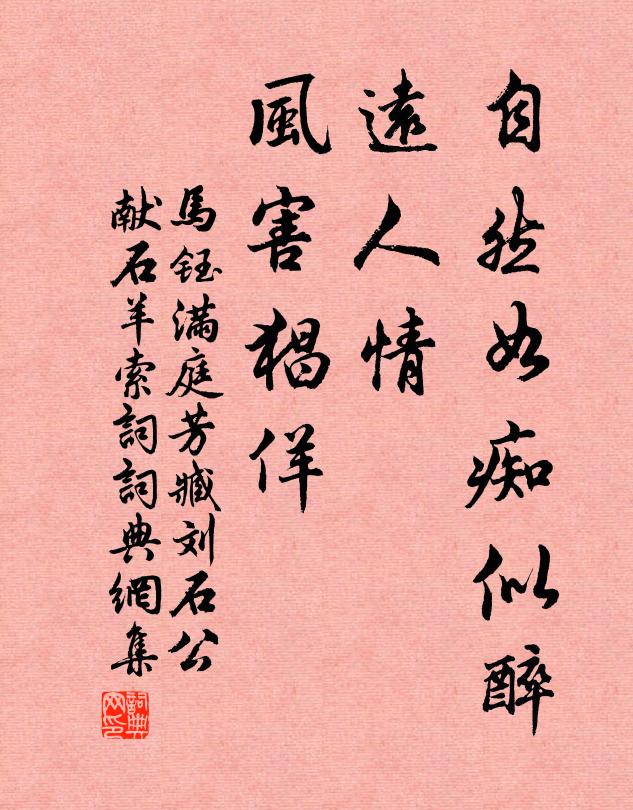 自然如痴似醉
遠人情
風害猖佯
馬鈺满庭芳臧刘石公
献石羊索詞詞典網集
詞典
网印